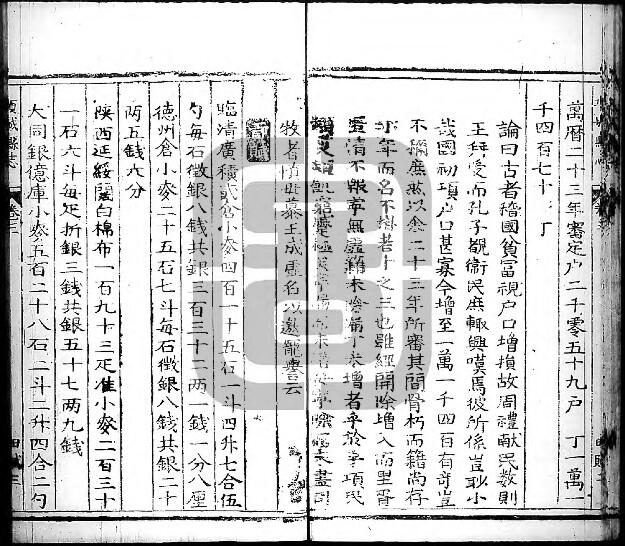 萬曆二十三年審定户二千零五十九户 丁一萬
千四百七十 丁
論曰古者稽國貧富視户口增損故周禮獻民數則
王拜受而孔子觀衛民庶輒興嘆焉彼所係豈眇小
哉國初項户口甚寡今增至一萬一千四百有奇豈
不稱庶然以余二十三年所審其間骨朽而籍尚存
年而名不掛者十之三也雖經開除增入而里胥
匿情不
牧者慎毋慕王成虛名以邀寵譽云
臨清廣積貳倉小麥四百一十五石一斗四升七合伍
勺每石徵銀八錢共銀三百三十二兩一錢一分八厘
德州倉小麥二十五石七斗每石徵銀八錢共銀二十
兩五錢六分
陝西延綏闊白棉布一百九十三疋准小麥二百三十
一石六斗每疋折銀三錢共銀五十七兩九錢
大同銀億庫小麥五百二十八石二斗二升四合二勺
城縣志 卷三